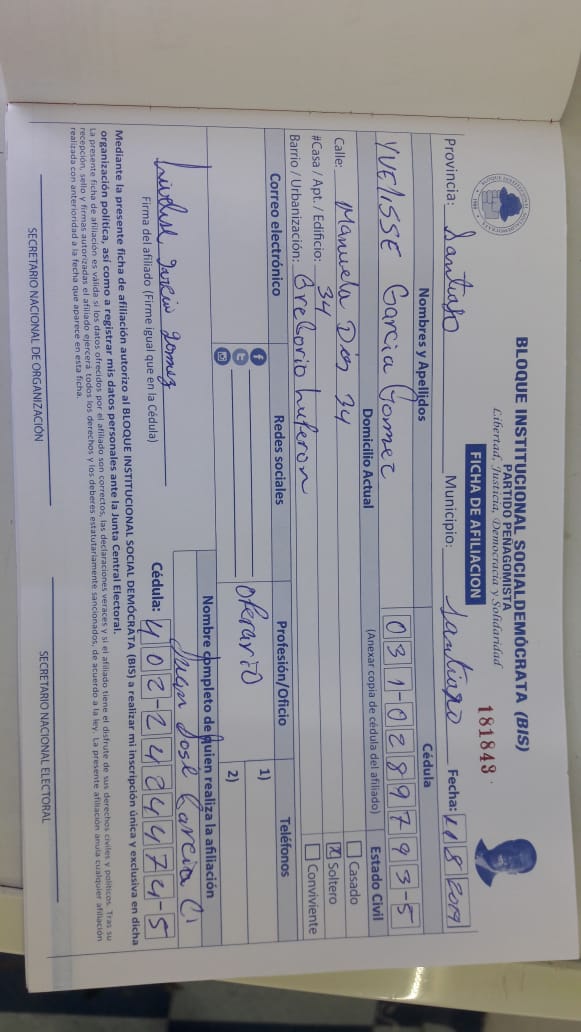 BLOQUE INSTITUCIONAL SOCIALDEMÓCRATA (BIS)
PARTIDO PEÑAGOMISTA
Libertad, Justicia, Democracia y Solidaridad
FICHA DE AFILIACION
181843
Provincia: Santiago Municipio: Santiago Fecha: 8 2019
Nombres y Apellidos Cédula
YUELISSE Garcia Gomez 031-0289793-5
Domicilio Actual (Anexar copia de cédula del afiliado) Estado Civil
Calle: Manuela Dias 34
Casado
X Soltero
Conviviente
#Casa / Apt. / Edificio: 34
Barrio / Urbanización: Gregorio Luperon
Correo electrónico Redes sociales Profesión/Oficio Teléfonos
Operario
1)
2)
Nombre completo de quien realiza la afiliación
Juan Jose Garcia
Garcia Gomez
Firma del afiliado (Firme igual que en la Cédula)
Cédula: 402-2424474-5
Mediante la presente ficha de afiliación autorizo al BLOQUE INSTITUCIONAL SOCIAL DEMÓCRATA (BIS) a realizar mi inscripción única y exclusiva en dicha
organización política, así como a registrar mis datos personales ante la Junta Central Electoral.
La presente ficha de afiliación es válida si los datos ofrecidos por el afiliado son correctos, las declaraciones veraces y si el afiliado tiene el disfrute de sus derechos civiles y políticos. Tras su
recepción, sello y firmas autorizadas el afiliado ejercerá todos los derechos y los deberes estatutariamente sancionados, de acuerdo a la ley. La presente afiliación anula cualquier afiliación
realizada con anterioridad a la fecha que aparece en esta ficha.
SECRETARIO NACIONAL DE ORGANIZACIÓN SECRETARIO NACIONAL ELECTORAL